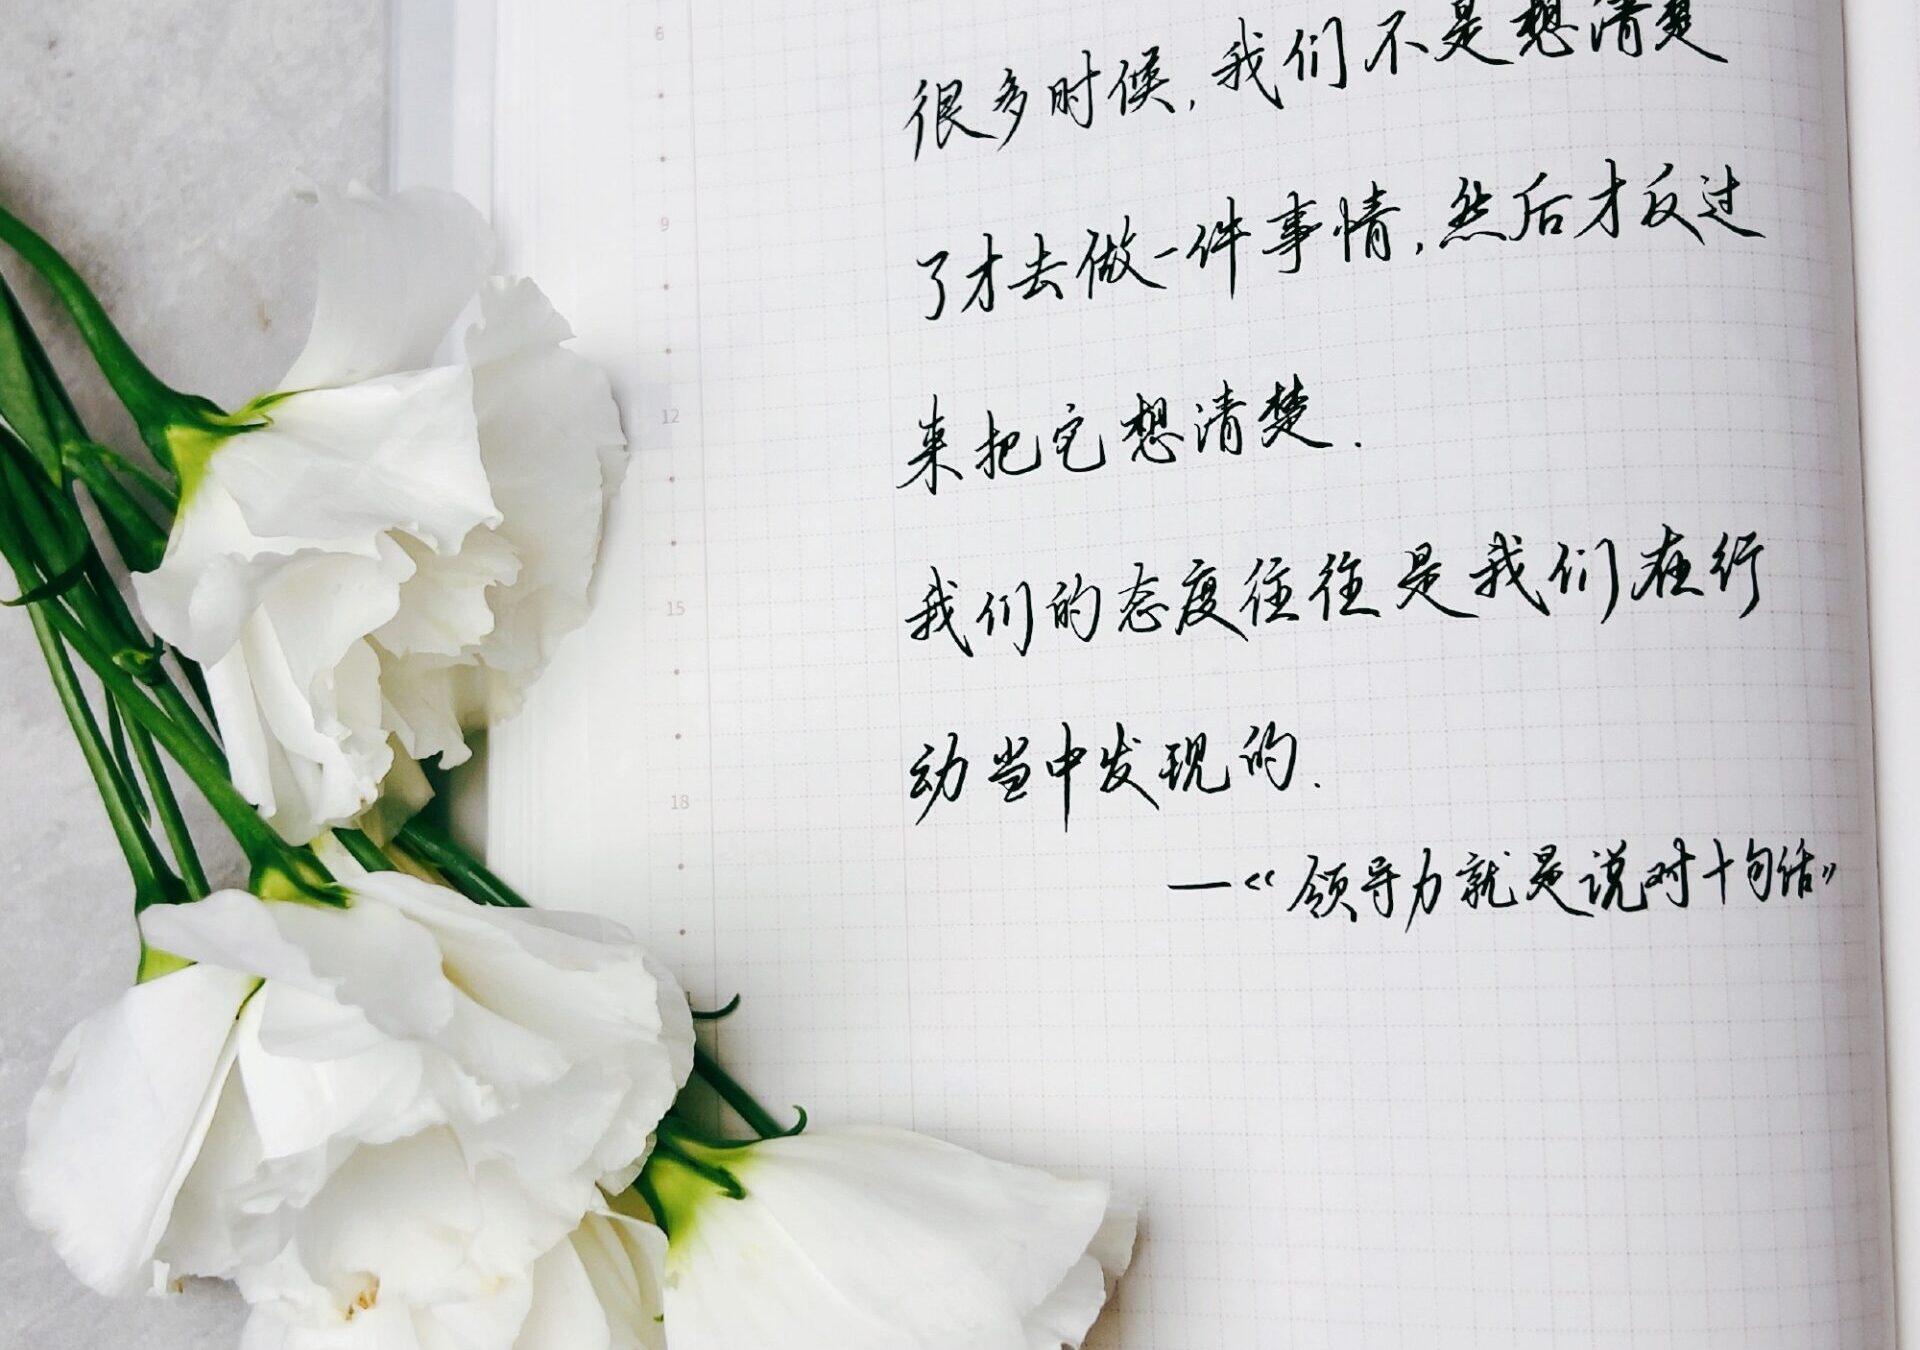 6
很多时候,我们不是想清楚
9
了才去做一件事情,然后才反过
12
来把它想清楚.
15
我们的态度往往是我们在行
18
动当中发现的.
—《领导力就是说对十句话》